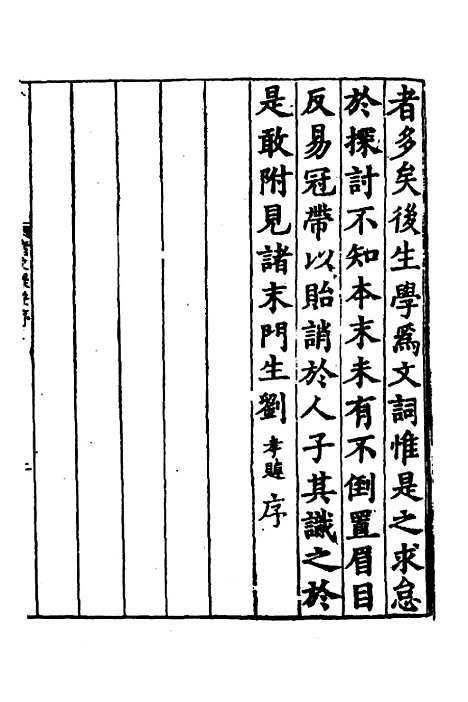 者多矣後生學爲文詞惟是之求怠
於探討不知本末未有不倒置眉目
反易冠帶以貽誚於人子其識之於
是敢附見諸末門生劉孝韙序